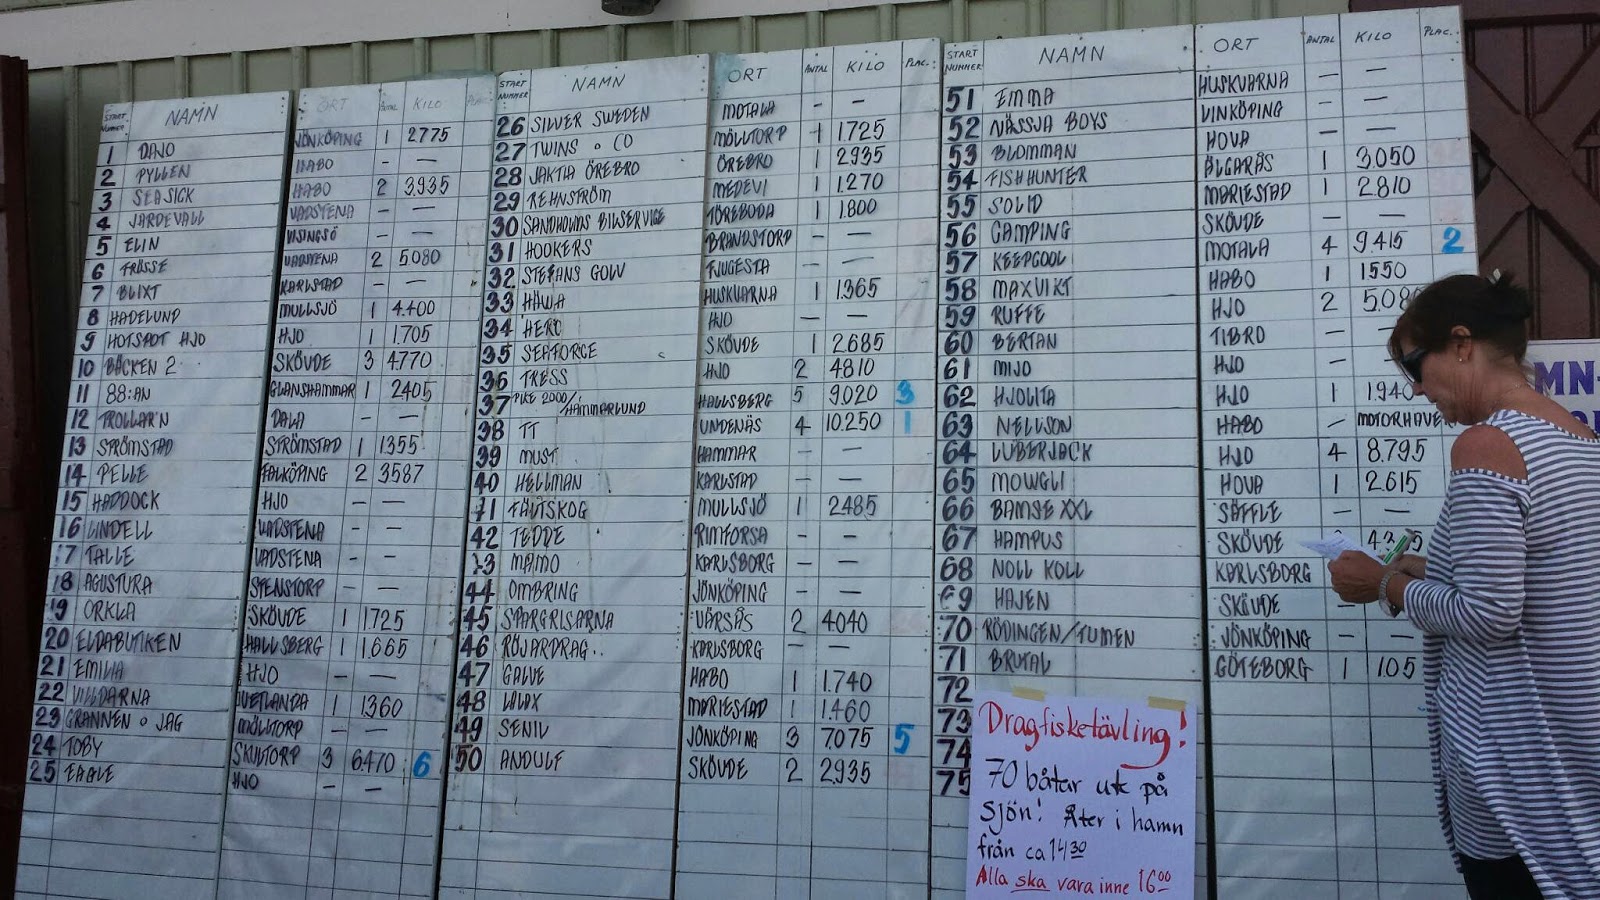 START NUMMER NAMN ORT ANTAL KILO PLAC.
1 DAJO JÖNKÖPING 1 2.775
2 PYLLEN HABO — —
3 SEASICK HABO 2 3.935
4 JÄRDEVALL VADSTENA — —
5 ELIN VISINGSÖ — —
6 FRÖSSE VADSTENA 2 5.080
7 BLIXT KARLSTAD — —
8 HADELUND MULLSJÖ 1 4.400
9 HOTSPOT HJO HJO 1 1.705
10 BÄCKEN 2 SKÖVDE 3 4.770
11 88:AN GLANSHAMMAR 1 2405
12 TROLLAR'N DALA — —
13 STRÖMSTAD STRÖMSTAD 1 1.355
14 PELLE FALKÖPING 2 3587
15 HADDOCK HJO — —
16 LINDELL VADSTENA — —
17 TALLE VADSTENA — —
18 AGUSTURA STENSTORP — —
19 ORKLA SKÖVDE 1 1.725
20 ELDABUTIKEN HALLSBERG 1 1.665
21 EMILIA HJO — —
22 VILLDARNA VETLANDA 1 1.360
23 GRANNEN o JAG MÖLLTORP — —
24 TOBY SKULTORP 3 6.470 6
25 EAGLE HJO — —
START NUMMER NAMN ORT ANTAL KILO PLAC.:
26 SILVER SWEDEN MOTALA — —
27 TWINS o CO MÖLLTORP 1 1.725
28 JAKTIA ÖREBRO ÖREBRO 1 2.935
29 REHNSTRÖM MEDEVI 1 1.270
30 SANDHOLMS BILSERVICE TÖREBODA 1 1.800
31 HOOKERS BRANDSTORP — —
32 STEFANS GOLV FJUGESTA — —
33 HÄWA HUSKVARNA 1 1.365
34 HERO HJO — —
35 SEAFORCE SKÖVDE 1 2.685
36 TRESS HJO 2 4810
37 PIKE 2000/HAMMARLUND HALLSBERG 5 9.020 3
38 TT UNDENÄS 4 10.250 1
39 MUST HAMMAR — —
40 HELLMAN KARLSTAD — —
41 FÄLTSKOG MULLSJÖ 1 2485
42 TEDDE RIMFORSA — —
43 MAMO KARLSBORG — —
44 OMBRING JÖNKÖPING — —
45 SPARGRISARNA VÄRSÅS 2 4040
46 RÖJARDRAG.. KARLSBORG — —
47 GALVE HABO 1 1.740
48 MARIESTAD 1 1.460
49 SENIL JÖNKÖPING 3 7.075 5
50 ANDULF SKÖVDE 2 2.935
START NUMMER NAMN ORT ANTAL KILO PLAC.:
51 EMMA HUSKVARNA — —
52 NÄSSJA BOYS VINKÖPING — —
53 BLOMMAN HOVA — —
54 FISHHUNTER ÄLGARÅS 1 3.050
55 SOLID MARIESTAD 1 2.810
56 CAMPING SKÖVDE — —
57 KEEPCOOL MOTALA 4 9.415 2
58 MAXVIKT HABO 1 1550
59 RUFFE HJO 2 5.08
60 BERTAN TIBRO — —
61 MIJO HJO — —
62 HJOLITA HJO 1 1.940
63 NELLSON HABO — MOTORHAVER
64 LUBERJACK HJO 4 8.795
65 MOWGLI HOVA 1 2.615
66 BAMSE XXL SÄFFLE — —
67 HAMPUS SKÖVDE
68 NOLL KOLL KARLSBORG
69 HAJEN SKÖVDE —
70 RÖDINGEN/TUMEN JÖNKÖPING — —
71 BRUTAL GÖTEBORG 1 1.05
72
73
74
75
Dragfisketävling!
70 båtar ute på
sjön! Åter i hamn
från ca 14 30
Alla ska vara inne 16 00
MN-